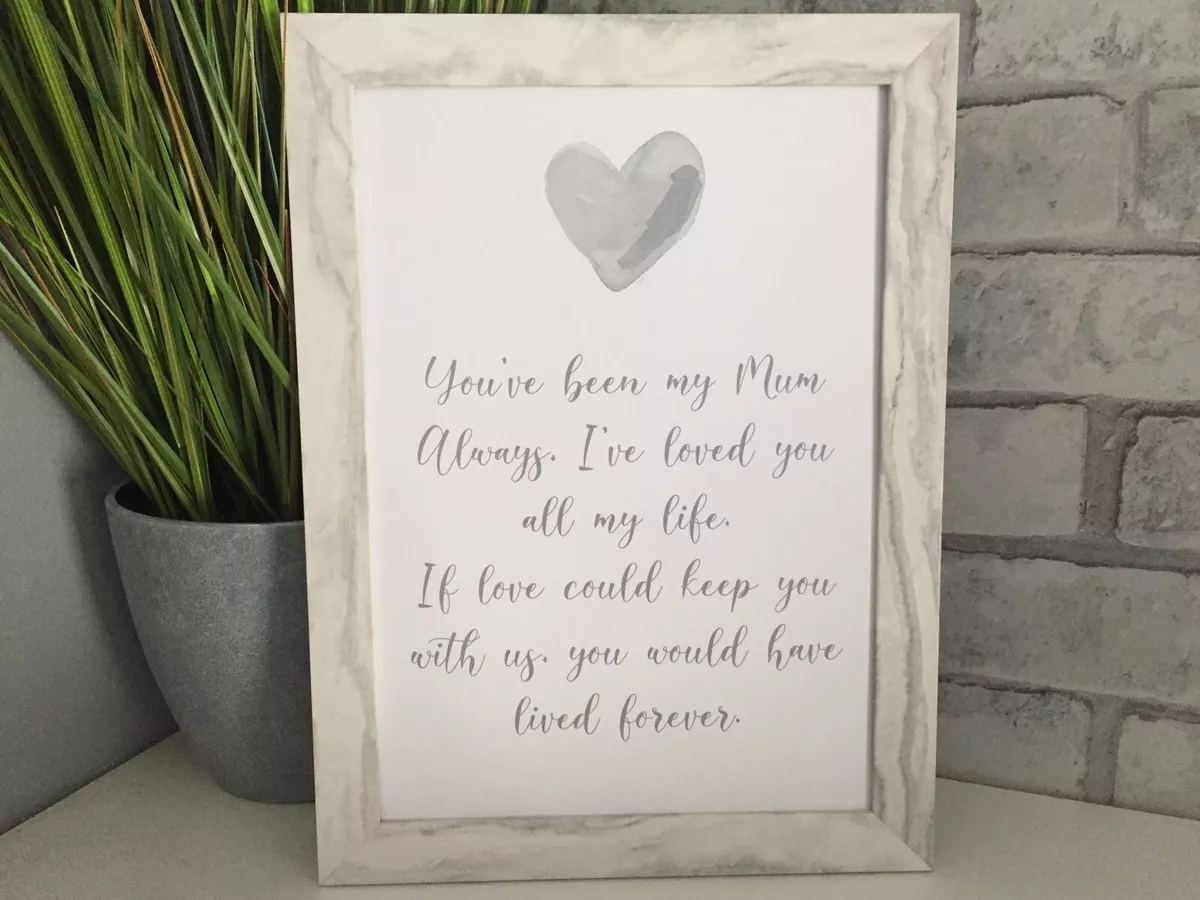 You've been my Mum
Always. I've loved you
all my life.
If love could keep you
with us. you would have
lived forever.